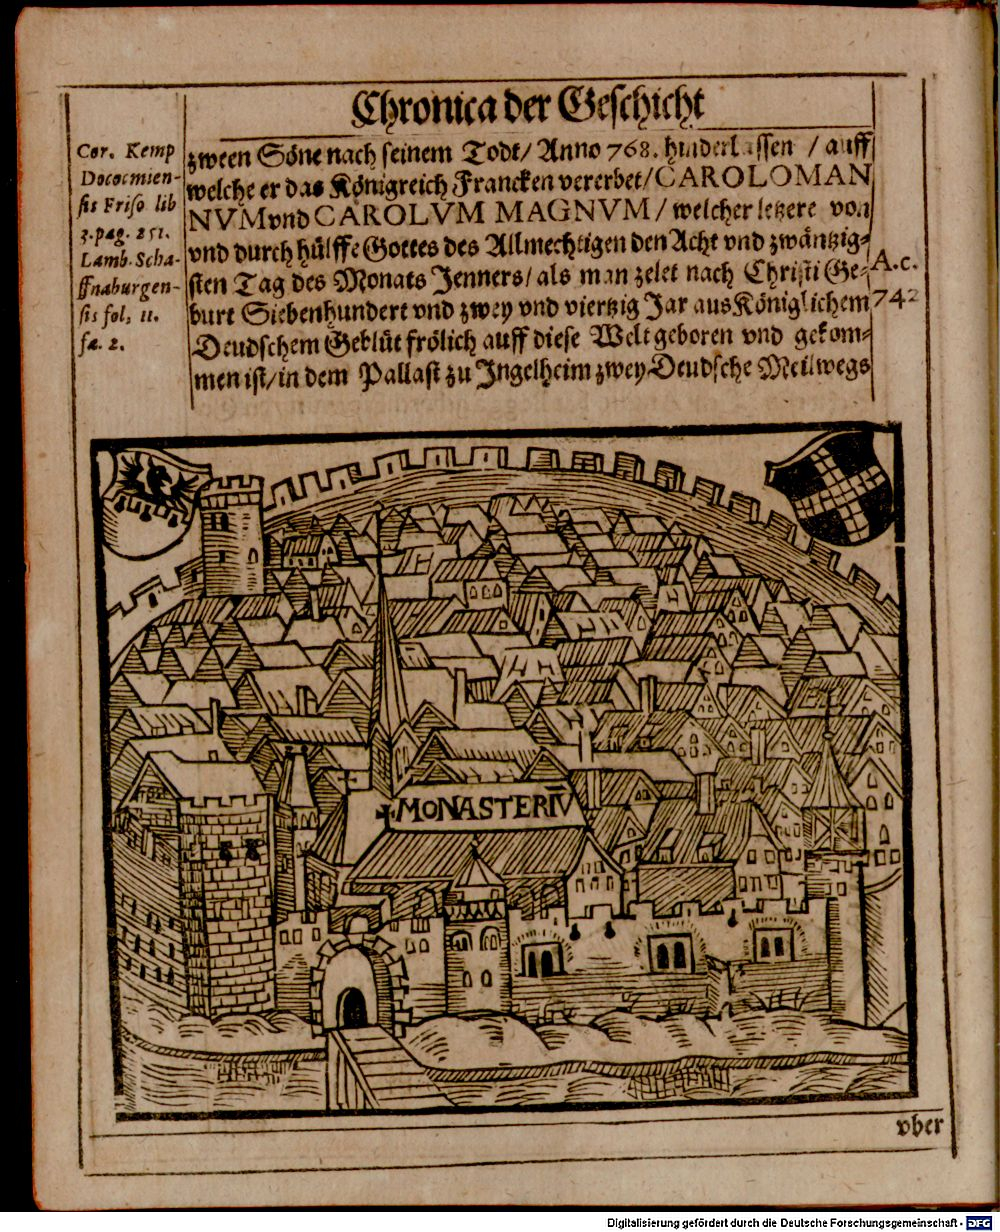 Chronica der Geschicht
Cor. Kemp
Dococmien-
sis Friso lib
3. pag. 251.
Lamb. Scha-
ffnaburgen-
sis fol, 11.
fa. 2.
zween Söne nach seinem Todt/ Anno 768. hinderlassen / auff
welche er das Königreich Francken vererbet/ CAROLOMAN
NVM vnd CAROLVM MAGNVM / welcher letzere von
vnd durch hülffe Gottes des Allmechtigen den Acht vnd zwäntzig-
sten Tag des Monats Jenners/ als man zelet nach Christi Ge-
burt Siebenhundert vnd zwey vnd viertzig Jar aus Königlichem
Deudschem Geblüt frölich auff diese Welt geboren vnd gekom-
men ist/ in dem Pallast zu Ingelheim zwey Deudsche Meilwegs
A.c.
742
MONASTERIV̄
vber
Digitalisierung gefördert durch die Deutsche Forschungsgemeinschaft - DFG